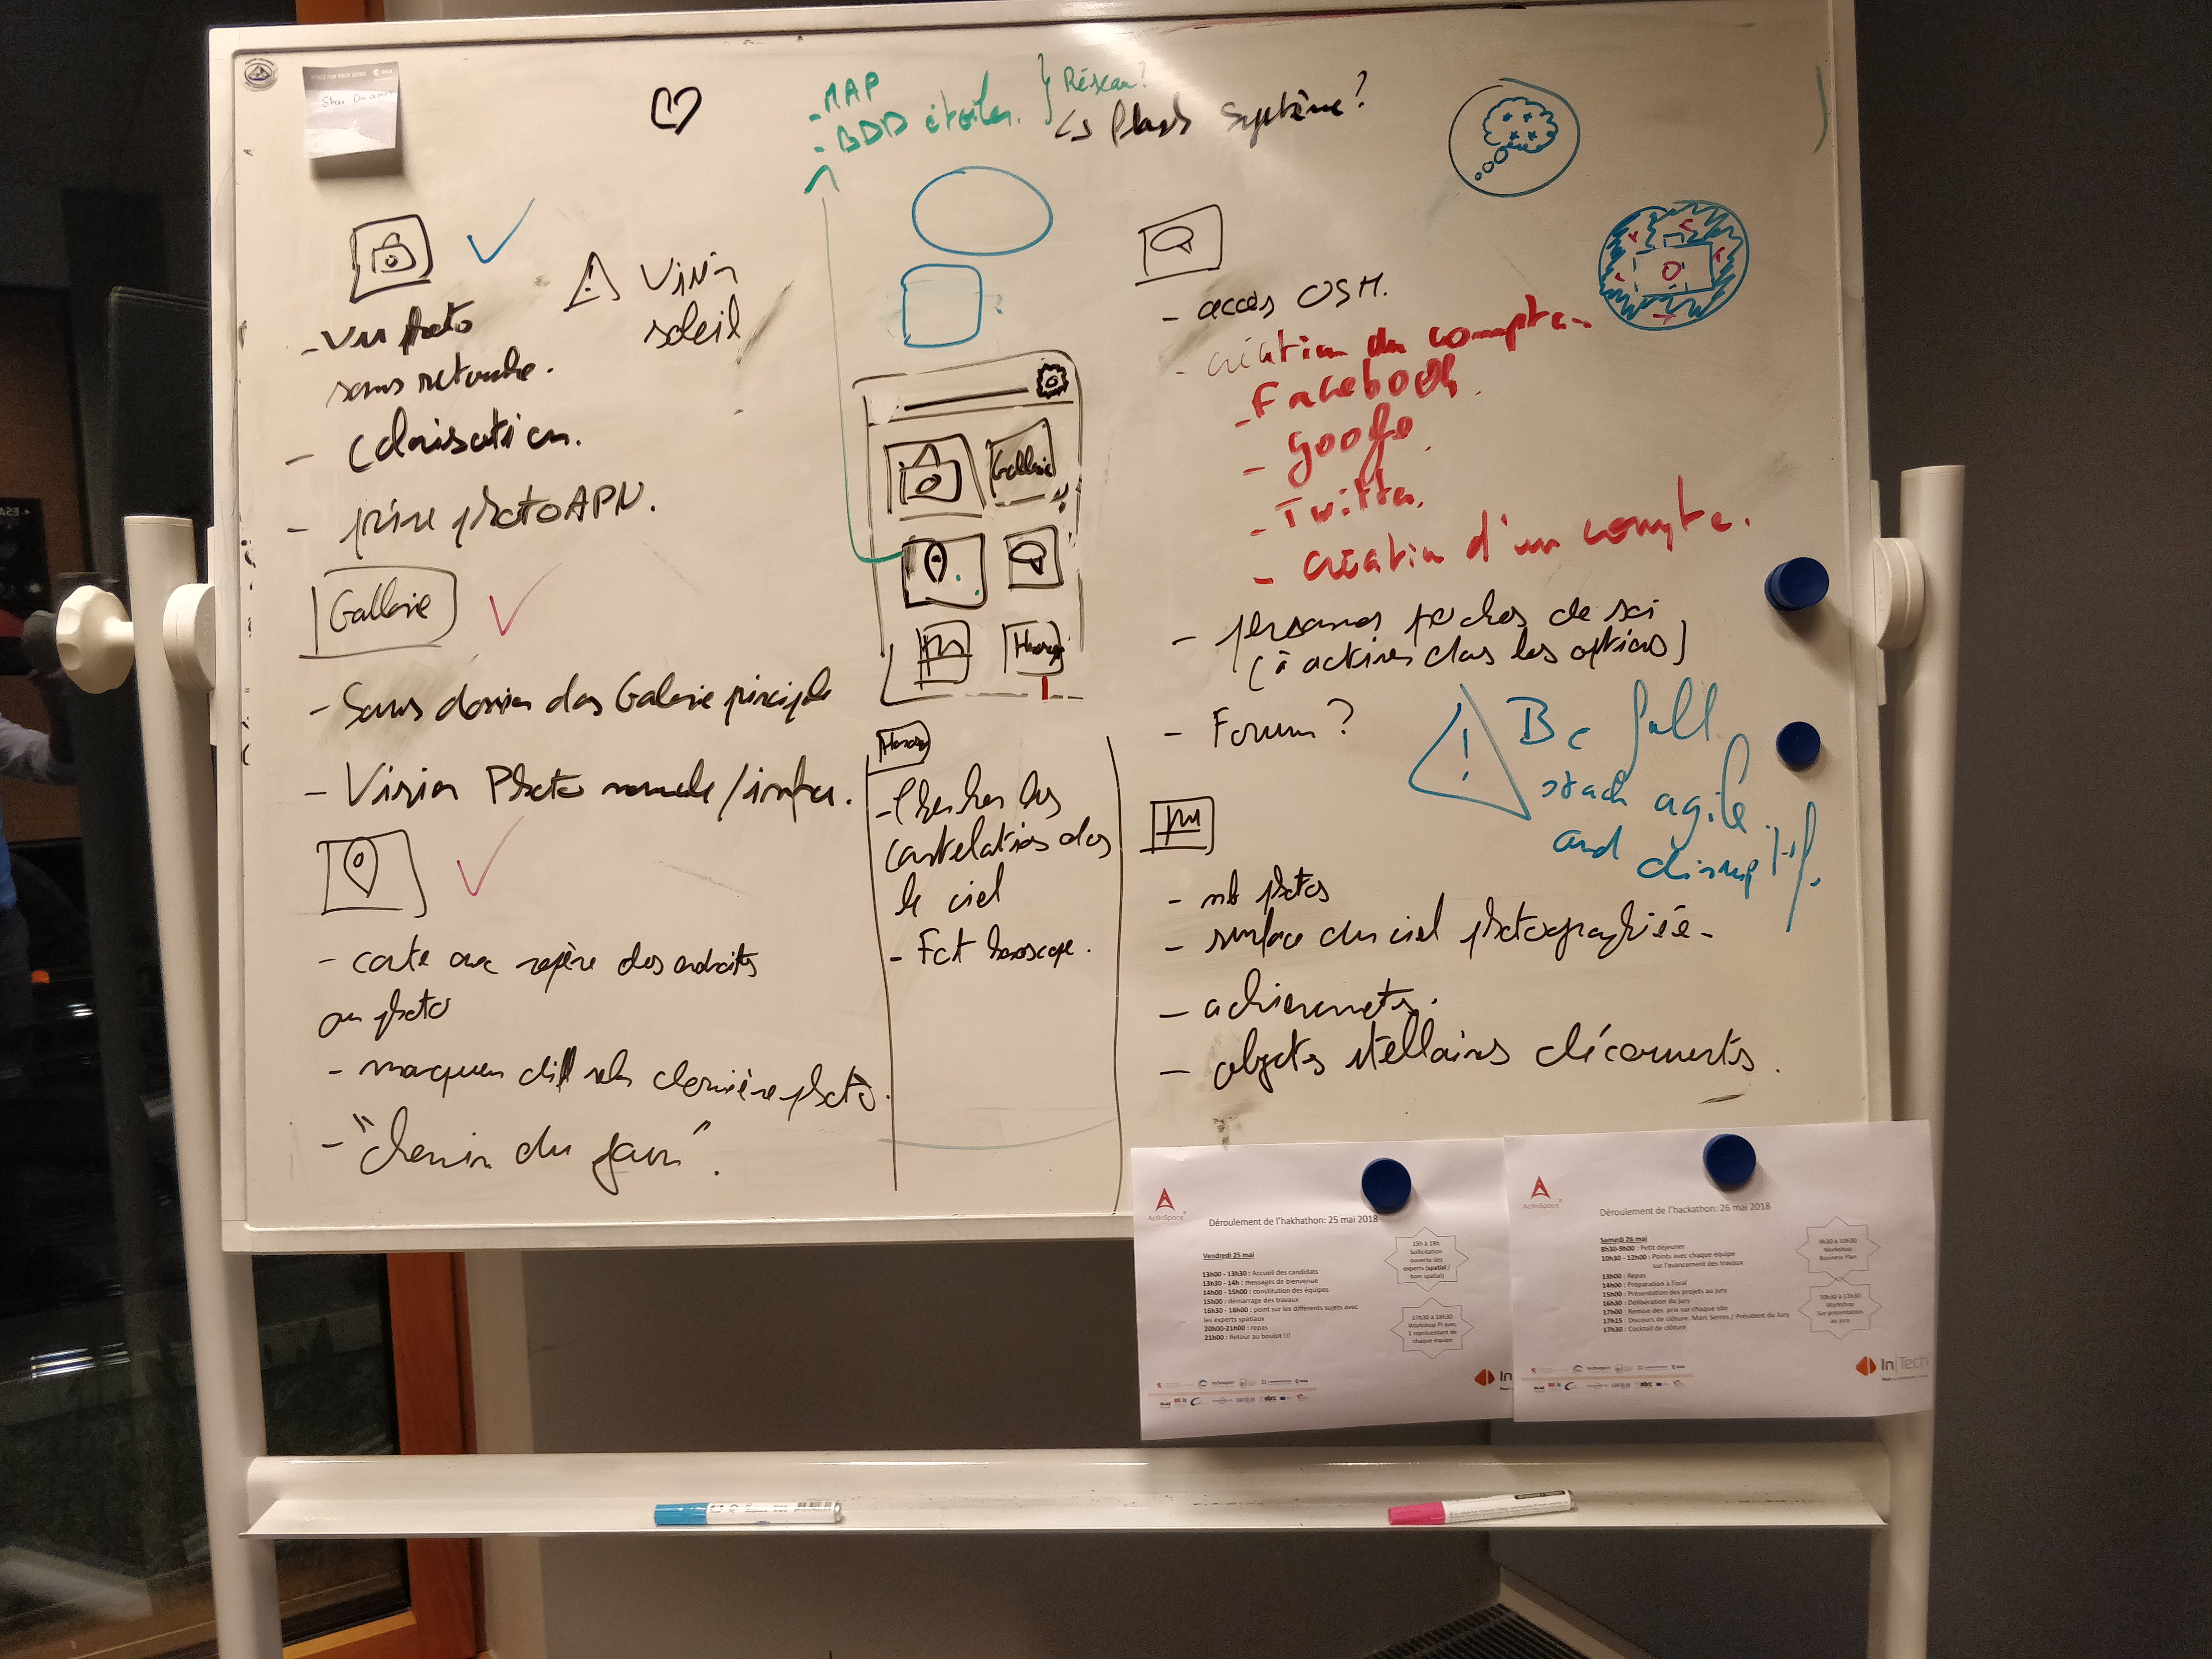 SPACE FOR YOUR IDEAS
esa
Star
- MAP
- BDD étoiles.
Réseau?
↳ Plans Système?
! Viser
soleil
- Vu photo
sans retouche.
- Colorisation.
- prise photo APN.
Gallerie
- Sous dossier ds Galerie principle
- Vision Photo normale/infra.
- carte avec repère des endroits
ou photo
- marqueur diff selon dernière photo.
- "Chemin du jour".
Gallerie
Horos
Horos
- Chercher les
constelations ds
le ciel
- Fct horoscope.
- accès OSM.
- création du compte.
- Facebook.
- Google.
- Twitter.
- création d'un compte.
- personnes proches de soi
(à activer dans les options)
- Forum?
! Be full
stack agile
and disruptif.
- nb photos
- surface du ciel photographiée.
- achievements.
- objets stellaires découverts.
ActInSpace
Déroulement de l'hakhathon: 25 mai 2018
Vendredi 25 mai
13h00 - 13h30 : Accueil des candidats
13h30 - 14h : messages de bienvenue
14h00 - 15h00 : constitution des équipes
15h00 : démarrage des travaux
16h30 - 18h00 : point sur les différents sujets avec
les experts spatiaux
20h00-21h00 : repas
21h00 : Retour au boulot !!!
15h à 18h
Sollicitation
ouverte des
experts (spatial /
hors spatial)
17h30 à 18h30
Workshop PI avec
1 représentant de
chaque équipe
In
ActInSpace
Déroulement de l'hackathon: 26 mai 2018
Samedi 26 mai
8h30-9h00 : Petit déjeuner
10h30 - 12h00 : Points avec chaque équipe
sur l'avancement des travaux
13h00 : Repas
14h00 : Préparation à l'oral
15h00 : Présentation des projets au jury
16h30 : Délibération du jury
17h00 : Remise des prix sur chaque site
17h15 : Discours de clôture: Marc Serres / Président du Jury
17h30 : Cocktail de clôture
9h30 à 10h30
Workshop
Business Plan
10h30 à 11h30
Workshop
Sur présentation
au jury
In|Tech